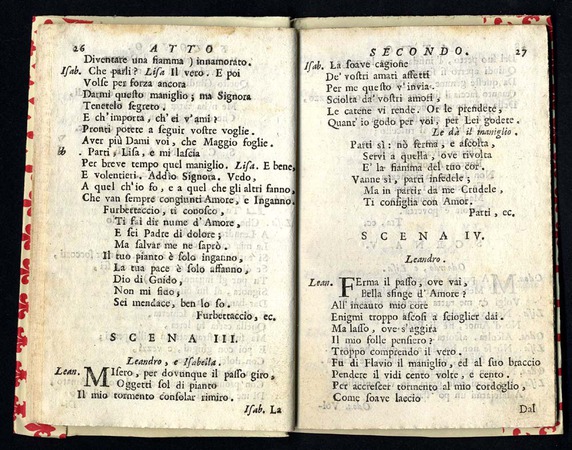 26 ATTO
Diventare una fiamma ) innamorato.
Isab. Che parli? Lisa Il vero. E poi
Volse per forza ancora
Darmi questo maniglio; ma Signora
Tenetelo segreto.
E ch'importa, ch'ei v'ami?
Pronti potete a seguir vostre voglie.
Aver più Dami voi, che Maggio foglie.
. Parti, Lisa, e mi lascia
Per breve tempo quel maniglio. Lisa. E bene,
E volentieri. Addio Signora. Vedo,
A quel ch'io fo, e a quel che gli altri fanno,
Che van sempre congiunti Amore, e Inganno.
Furbettaccio, ti conosco,
Ti fai dir nume d'Amore,
E sei Padre di dolore;
Ma salvar me ne saprò.
Il tuo pianto è solo inganno,
La tua pace è solo affanno,
Dio di Guido,
Non mi fido,
Sei mendace, ben lo so.
Furbettaccio, ec.
SCENA III.
Leandro, e Isabella.
Lean. MIsero, per dovunque il passo giro,
Oggetti sol di pianto
Il mio tormento consolar rimiro.
Isab. La
SECONDO. 27
Isab. La soave cagione
De' vostri amati affetti
Per me questo v'invia.
Sciolta da' vostri amori,
Le catene vi rende. Or le prendete,
Quant'io godo per voi, per Lei godete.
Le dà il maniglio.
Parti sì: nò ferma, e ascolta,
Servi a quella, ove rivolta
E' la fiamma del tuo cor.
Vanne sì, parti infedele;
Ma in partir da me Crudele,
Ti consiglia con Amor.
Parti, ec.
SCENA IV.
Leandro.
Lean. FErma il passo, ove vai,
Bella sfinge d'Amore?
All'incauto mio core
Enigmi troppo ascosi a scioglier dai.
Ma lasso, ove s'aggira
Il mio folle pensiero?
Troppo comprendo il vero.
Fu di Flavio il maniglio, ed al suo braccio
Pendere il vidi cento volte, e cento.
Per accrescer tormento al mio cordoglio,
Come soave laccio
Dal